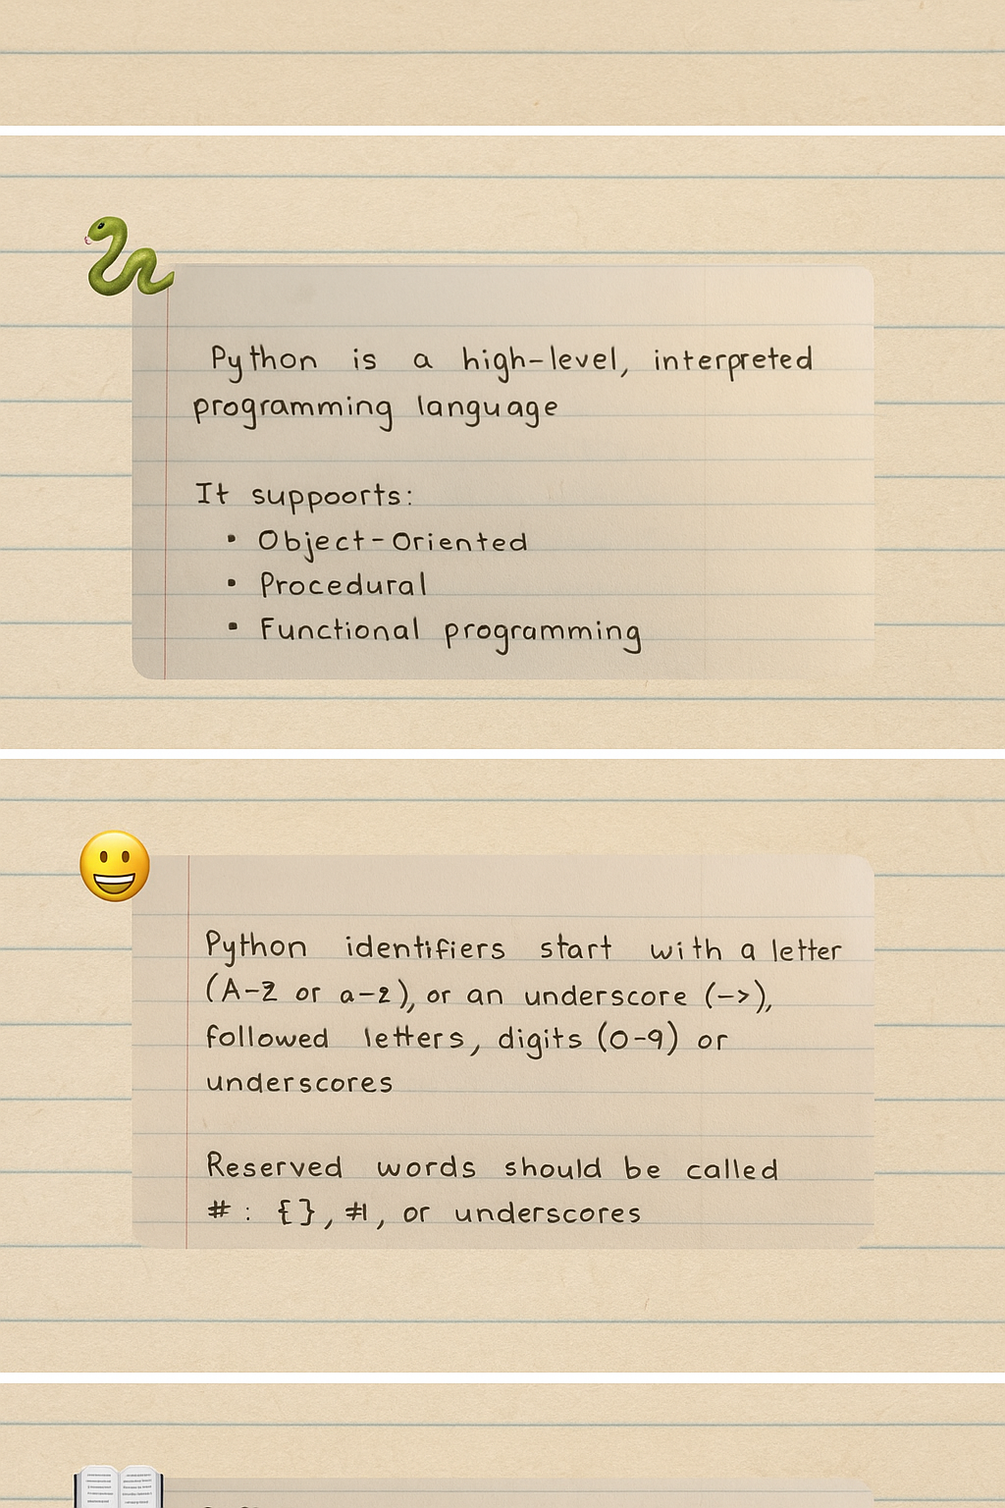 Python is a high-level, interpreted
programming language
It suppoorts:
• Object-Oriented
• Procedural
• Functional programming
Python identifiers start with a letter
(A-Z or a-z), or an underscore (->),
followed letters, digits (0-9) or
underscores
Reserved words should be called
#: {}, #1, or underscores